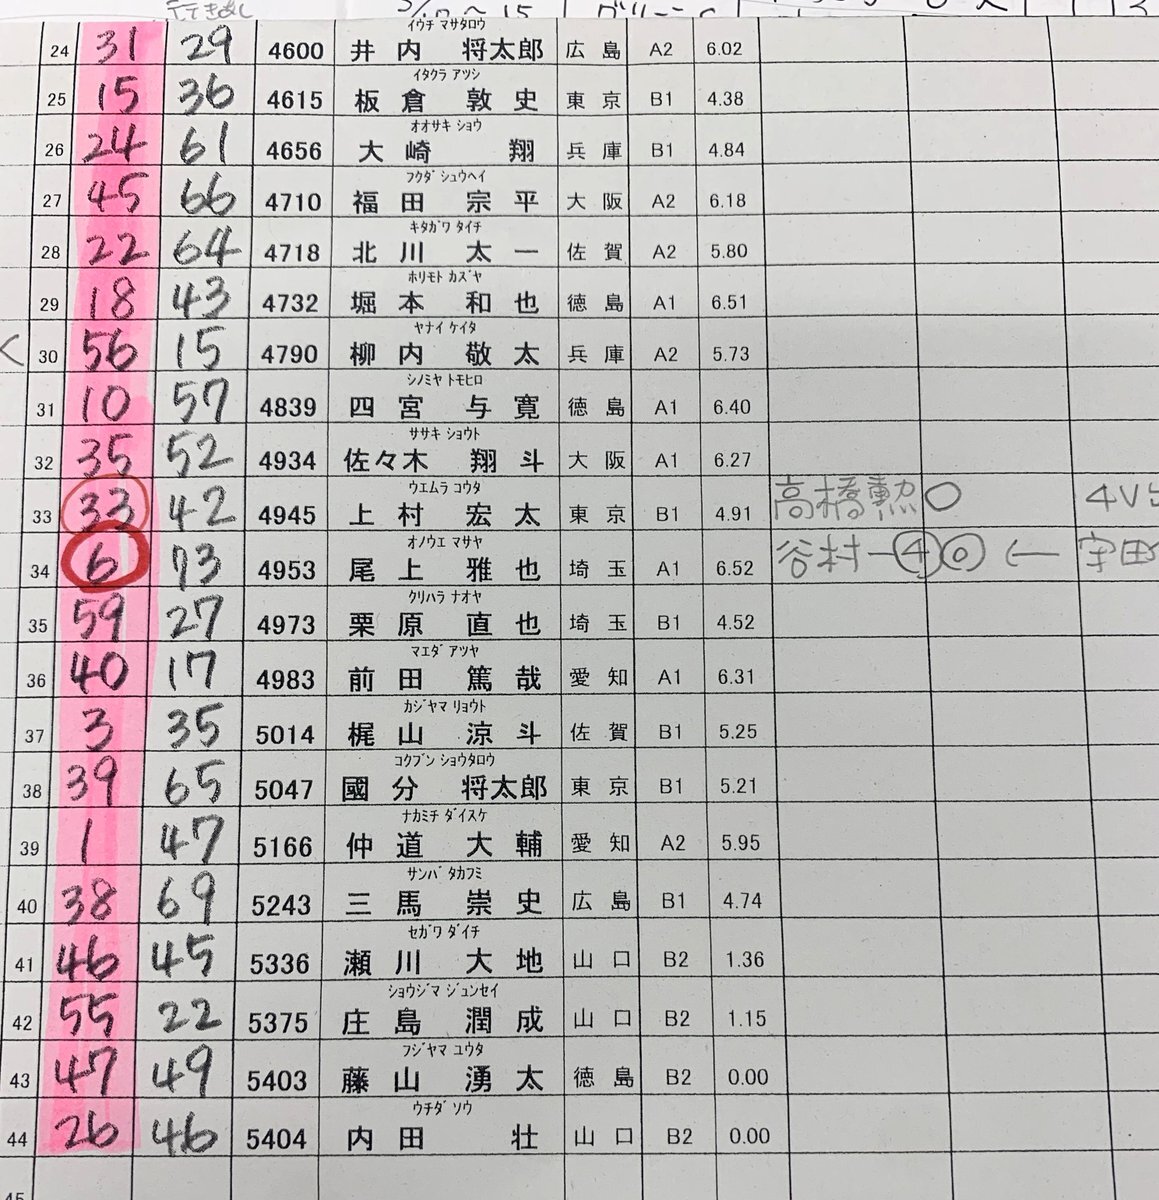 5/10～15
24 31 29 4600 イウチ マサタロウ 井内 将太郎 広島 A2 6.02
25 15 36 4615 イタクラ アツシ 板倉 敦史 東京 B1 4.38
26 24 61 4656 オオサキ ショウ 大崎 翔 兵庫 B1 4.84
27 45 66 4710 フクダ シュウヘイ 福田 宗平 大阪 A2 6.18
28 22 64 4718 キタガワ タイチ 北川 太一 佐賀 A2 5.80
29 18 43 4732 ホリモト カズヤ 堀本 和也 徳島 A1 6.51
30 56 15 4790 ヤナイ ケイタ 柳内 敬太 兵庫 A2 5.73
31 10 57 4839 シノミヤ トモヒロ 四宮 与寛 徳島 A1 6.40
32 35 52 4934 ササキ ショウト 佐々木 翔斗 大阪 A1 6.27
33 33 42 4945 ウエムラ コウタ 上村 宏太 東京 B1 4.91 高橋勲○ 4V
34 6 73 4953 オノウエ マサヤ 尾上 雅也 埼玉 A1 6.52 谷村一④◎ ← 宇田
35 59 27 4973 クリハラ ナオヤ 栗原 直也 埼玉 B1 4.52
36 40 17 4983 マエダ アツヤ 前田 篤哉 愛知 A1 6.31
37 3 35 5014 カジヤマ リョウト 梶山 涼斗 佐賀 B1 5.25
38 39 65 5047 コクブン ショウタロウ 國分 将太郎 東京 B1 5.21
39 1 47 5166 ナカミチ ダイスケ 仲道 大輔 愛知 A2 5.95
40 38 69 5243 サンバ タカフミ 三馬 崇史 広島 B1 4.74
41 46 45 5336 セガワ ダイチ 瀬川 大地 山口 B2 1.36
42 55 22 5375 ショウジマ ジュンセイ 庄島 潤成 山口 B2 1.15
43 47 49 5403 フジヤマ ユウタ 藤山 湧太 徳島 B2 0.00
44 26 46 5404 ウチダ ソウ 内田 壮 山口 B2 0.00
45